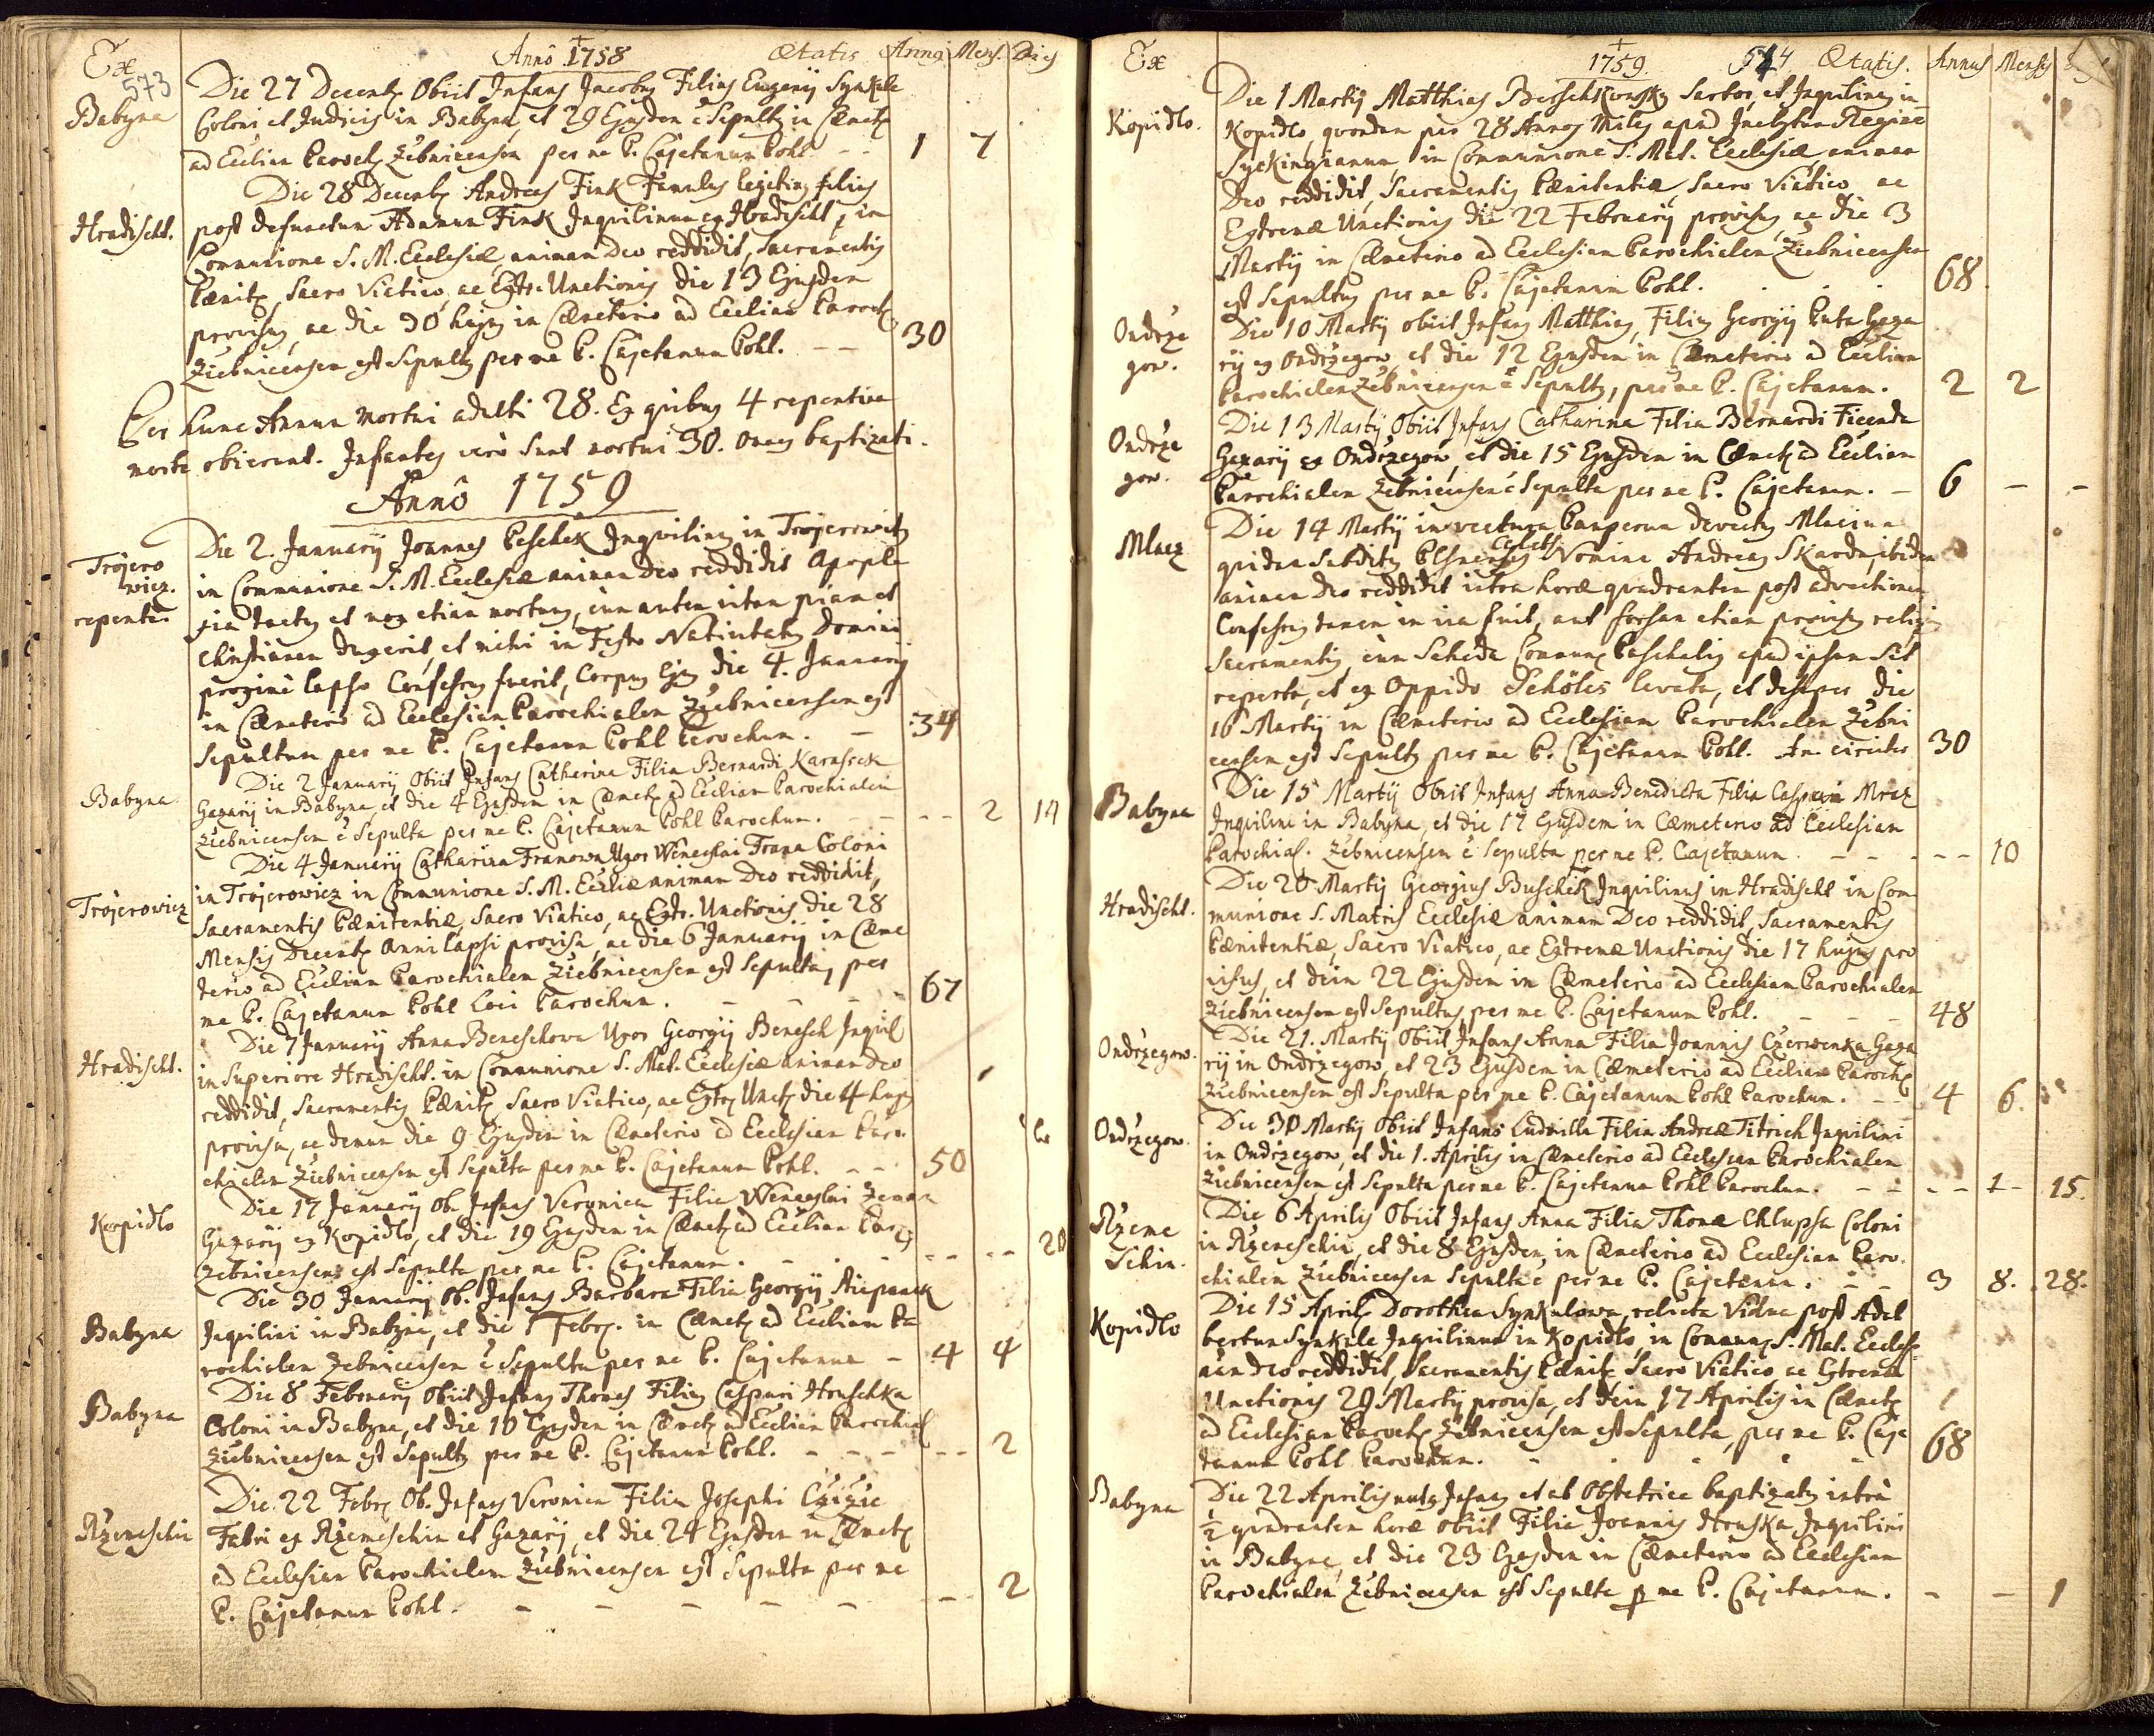 Ex
573
Annô 1758 Ætatis Anng Mens. Dies
Babyna
Die 27 Decemb Obiit Infans Jacobus Filius Eugenij Synkule
Coloni et Judicis in Babyna, et 29 Ejusdem è Sepultg in Cæmet
ad Ecclian Paroch Žebnicensem per me P. Cajetanum Pohl. - - 1 7
Hradischt.
Die 28 Decemb Andreas Fink Famulus legitimg filius
post defunctum Adamum Fink Inquilinum ex Hradischt, in
Communione S. M. Ecclesiæ, animam Deo reddidit, Sacramentis
Pænit, Sacro Viatico, ac Extr. Unctionis die 13 Ejusdem
provisus, ac die 30 hujus in Cæmeterio ad Ecclian Paroch
Žiebnicensem est Sepultg per me P. Cajetanum Pohl. - - 30
Per hunc Annum mortui adulti 28. Ex quibus 4 repentina
morte obierunt. Infantes verò sunt mortui 30. omnes baptizati.
Annô 1759
Trojero
wicz.
repente.
Die 2. Januarij Joannes Peschek Inquilinus in Trojerowitz
in Communione S. M. Ecclesiæ animam Deo reddidit Apople
xia tactus et mox etiam mortuus, cum autem vitam piam et
Christianam duxerit, et mihi in Festo Nativitatis Domini
proximè lapso Confessus fuerit, Corpus Ejus die 4. Januarij
in Cæmeterio ad Ecclesiam Parochialem Žiebnicensem est
Sepultum per me P. Cajetanum Pohl Parochum. - 34
Babyna
Die 2 Januarij Obiit Infans Catharina Filia Bernardi Karassek
Gazarij in Babyna, et die 4 Ejusdem in Cæmet ad Ecclian Parochialem
Žiebnicensem è Sepulta per me P. Cajetanum Pohl Parochum. - - - - 2 14
Trojerowicz
Die 4 Januarij Catharina Franowa Uxor Wenceslai Frana Coloni
in Trojerowicz in Communione S. M. Eccliæ animam Deo reddidit,
Sacramentis Pænitentiæ, Sacro Viatico, ac Extr. Unctionis die 28
Mensis Decemb Anni lapsi provisa, ac die 6 Januarij in Cæme
terio ad Ecclian Parochialem Žiebnicensem est Sepulta, per
me P. Cajetanum Pohl loci Parochum. - - - - 67
Hradischt.
Die 7 Januarij Anna Beneschowa Uxor Georgij Benesch Inquil
in Superiore Hradischt. in Communione S. Mat. Ecclesiæ animam Deo
reddidit, Sacramentis Pænit, Sacro Viatico, ac Extr Unct die 4 hujus
provisa, ac demum die 9 Ejusdem in Cæmeterio ad Ecclesiam Paro
chialem Žiebnicensem est Sepulta per me P. Cajetanum Pohl. - - 50
Kopidlo
Die 17 Januarij Ob. Infans Veronica Filia Wenceslai Zeman
Gazarij ex Kopidlo, et die 19 Ejusdem in Cæmet ad Ecclian Paro
Žebnicensem est Sepulta per me P. Cajetanum. - - - - - - 20
Babyna
Die 30 Januarij Ob. Infans Barbara Filia Georgij
Inquilini in Babyna, et die 1 Febr. in Cæmet ad Ecclian Pa
rochialem Žebnicensem è Sepulta per me P. Cajetanum - 4 4
Babyna
Die 8 Februarij Obiit Infans Thomas Filius Caspari Hruschka
Coloni in Babyna, et die 10 Ejusdem in Cæmet ad Ecclian Parochial
Žiebnicensem est Sepultg per me P. Cajetanum Pohl. - - - - - 2
Rzemeschin
Die 22 Febr Ob. Infans Veronica Filia Josephi Czizic
Fabri ex Rzemeschin et Gazarij, et die 24 Ejusdem in Cæmet
ad Ecclesiam Parochialem Žiebnicensem est Sepulta per me
P. Cajetanum Pohl. - - - - - - 2
Ex
1759. 574 Ætatis. Annus Mensis
Kopidlo.
Die 1 Martij Matthias Berschkowsky Sartor, et Inquilinus in
Kopidlo, quondam per 28 Annos Miles apud Inclytam Regine
Syckingianum, in Communione S. Mat. Ecclesiæ, animam
Deo reddidit, Sacramentis Pænitentiæ, Sacro Viatico, ac
Extremæ Unctionis die 22 Februarij provisus, ac die 3
Martij in Cæmeterio ad Ecclesiam Parochialem Žiebnicensem
est Sepultus per me P. Cajetanum Pohl. 68
Ondrze
gow.
Die 10 Martij obiit Infans Matthias, Filius Georgij Puta Gaza
rij ex Ondržegow, et die 12 Ejusdem in Cæmeterio ad Ecclian
Parochialem Žebnicensem è Sepultg, per me P. Cajetanum. 2 2
Ondrze
gow.
Die 13 Martij Obiit Infans Catharina Filia Bernardi Ticenda
Gazarij ex Ondrzegow, et die 15 Ejusdem in Cæmet ad Ecclian
Parochialem Žebnicensem è Sepulta per me P. Cajetanum. - 6 - -
Mlacz
Die 14 Martij in vectura Pauperum devectus
quidam Subditus Plsnensis Cælebs Nomine Andreas Skarda, ibidem
animam Deo reddidit intra horæ quadrantem post advectionem
Confessus tamen in via fuit, aut forsan etiam provisus reliquis
Sacramentis, cum Scheda Commun Paschalis apud ipsum sit
reperta, et ex Oppido levata, et desuper die
16 Martij in Cæmeterio ad Ecclesiam Parochialem Žebni
censem est Sepultg per me P. Cajetanum Pohl. An. circiter 30
Babyna
Die 15 Martij Obiit Infans Anna Benedicta Filia Caspari Mraz
Inquilini in Babyna, et die 17 Ejusdem in Cæmeterio ad Ecclesiam
Parochial. Žebnicensem è Sepulta per me P. Cajetanum. - - - - - 10
Hradischt.
Die 20 Martij Georgius Buschek Inquilinus in Hradischt in Com
munione S. Matris Ecclesiæ animam Deo reddidit, Sacramentis
Pænitentiæ, Sacro Viatico, ac Extremæ Unctionis die 17 hujus pro
visus, et dein 22 Ejusdem in Cæmeterio ad Ecclesiam Parochialem
Žiebnicensem est Sepultus per me P. Cajetanum Pohl. - - - 48
Ondržegow.
Die 21. Martij Obiit Infans Anna Filia Joannis Czerwenka Gaza
rij in Ondržegow, et 23 Ejusdem in Cæmeterio ad Ecclian Paroch
Žiebnicensem est Sepulta per me P. Cajetanum Pohl Parochum. - - 4 6.
Ondržegow.
Die 30 Martij Obiit Infans Ludmilla Filia Andreæ Titrich Inquilini
in Ondržegow, et die 1. Aprilis in Cæmeterio ad Ecclesiam Parochialem
Žiebnicensem est Sepulta per me P. Cajetanum Pohl Parochum. - - - - 1 - 15.
Rzeme
schin.
Die 6 Aprilis Obiit Infans Anna Filia Thomæ Chlupsa Coloni
in Rzemeschin, et die 8 Ejusdem, in Cæmeterio ad Ecclesiam Paro
chialem Žiebnicensem Sepulta è per me P. Cajetanum. - - 3 8. 28.
Kopidlo
Die 15 April Dorothea Synkulowa, relicta Vidua post Adal
bertum Synkule Inquilinum in Kopidlo, in Commun S. Mat. Eccles
am Deo reddidit, Sacramentis Pænit, Sacro Viatico, ac Extremæ
Unctionis 29 Martij provisa, et dein 17 Aprilis in Cæmet
ad Ecclesiam Paroch Žebnicensem est Sepulta, per me P. Caje
tanum Pohl Parochum. - - - - 68
Babyna
Die 22 Aprilis natg Infans et ab Obstetrice baptizatg intra
½ quadrantem horæ obiit Filia Joannis Hruska Inquilini
in Babyna, et die 23 Ejusdem in Cæmeterio ad Ecclesiam
Parochialem Žebnicensem est Sepulta p me P. Cajetanum. - - 1